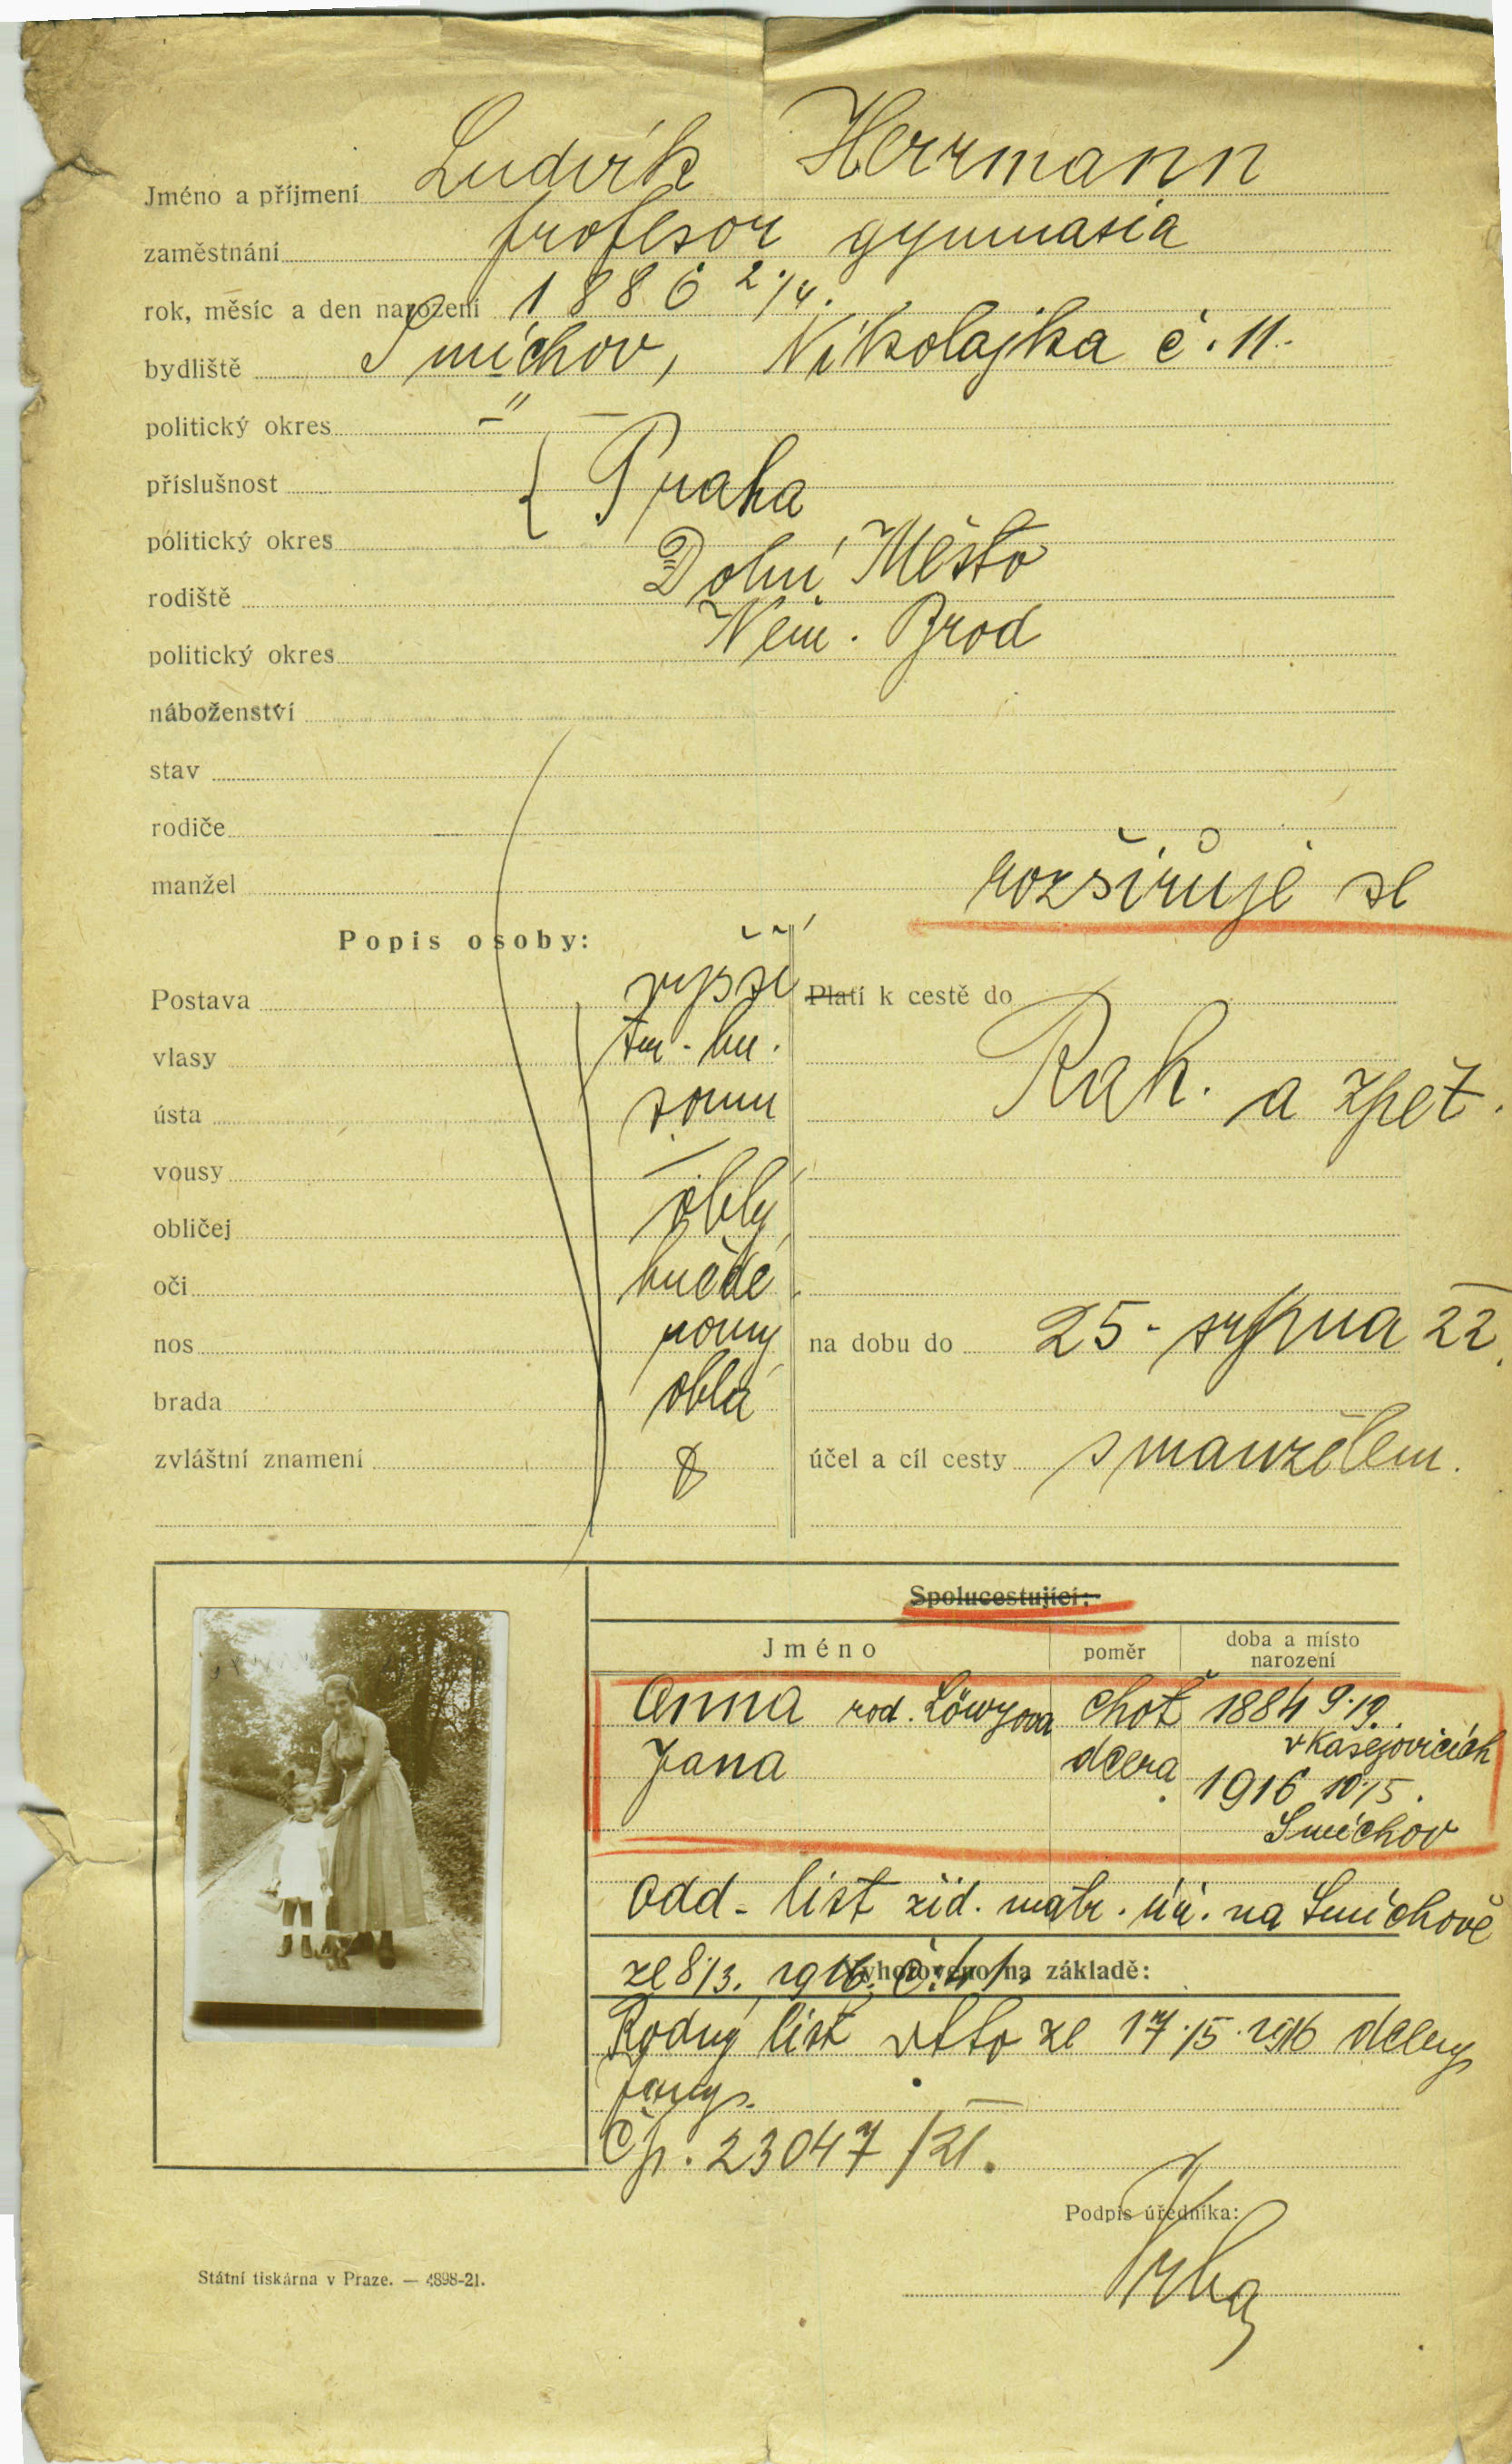 Jméno a příjmení Ludvík Herrmann
zaměstnání profesor gymnasia
rok, měsíc a den narození 1886 2./4.
bydliště Smíchov, Nikolajka č. 11.
politický okres –"–
příslušnost { Praha
politický okres
rodiště Dolní Město
politický okres Něm. Brod
náboženství
stav
rodiče
manžel
rozšiřuje se
Popis osoby:
Postava vyšší
vlasy tm. hn.
ústa soum
vousy —
obličej oblý
oči hnědé
nos rovný
brada oblá
zvláštní znamení
Platí k cestě do
Rak. a zpět.
na dobu do 25. srpna 22.
účel a cíl cesty s manželem.
Spolucestující:
Jméno poměr doba a místo narození
Anna rod. Löwyova choť 1884 9./9.
v Kasejovicích
Jana dcera 1916 10./5.
Smíchov
Odd. list žid. matr. úř. na Smíchově
ze 8/3. 1916 č. 41.
Vyhotoveno na základě:
Rodný list ze 17./5. 1916 dcery
Jany.
Čp. 23047/21.
Podpis úředníka:
Státní tiskárna v Praze. — 4898-21.